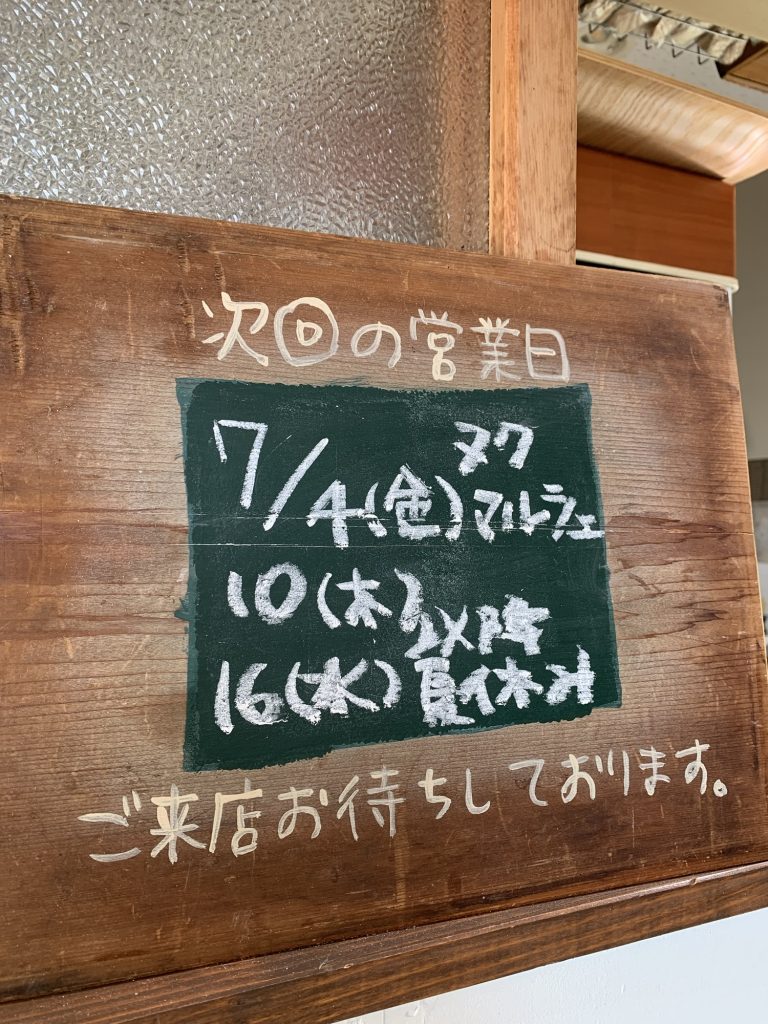 次回の営業日
ヌク
7/4(金)マルシェ
10(木)
以降
16(水)夏休み
ご来店お待ちしております。